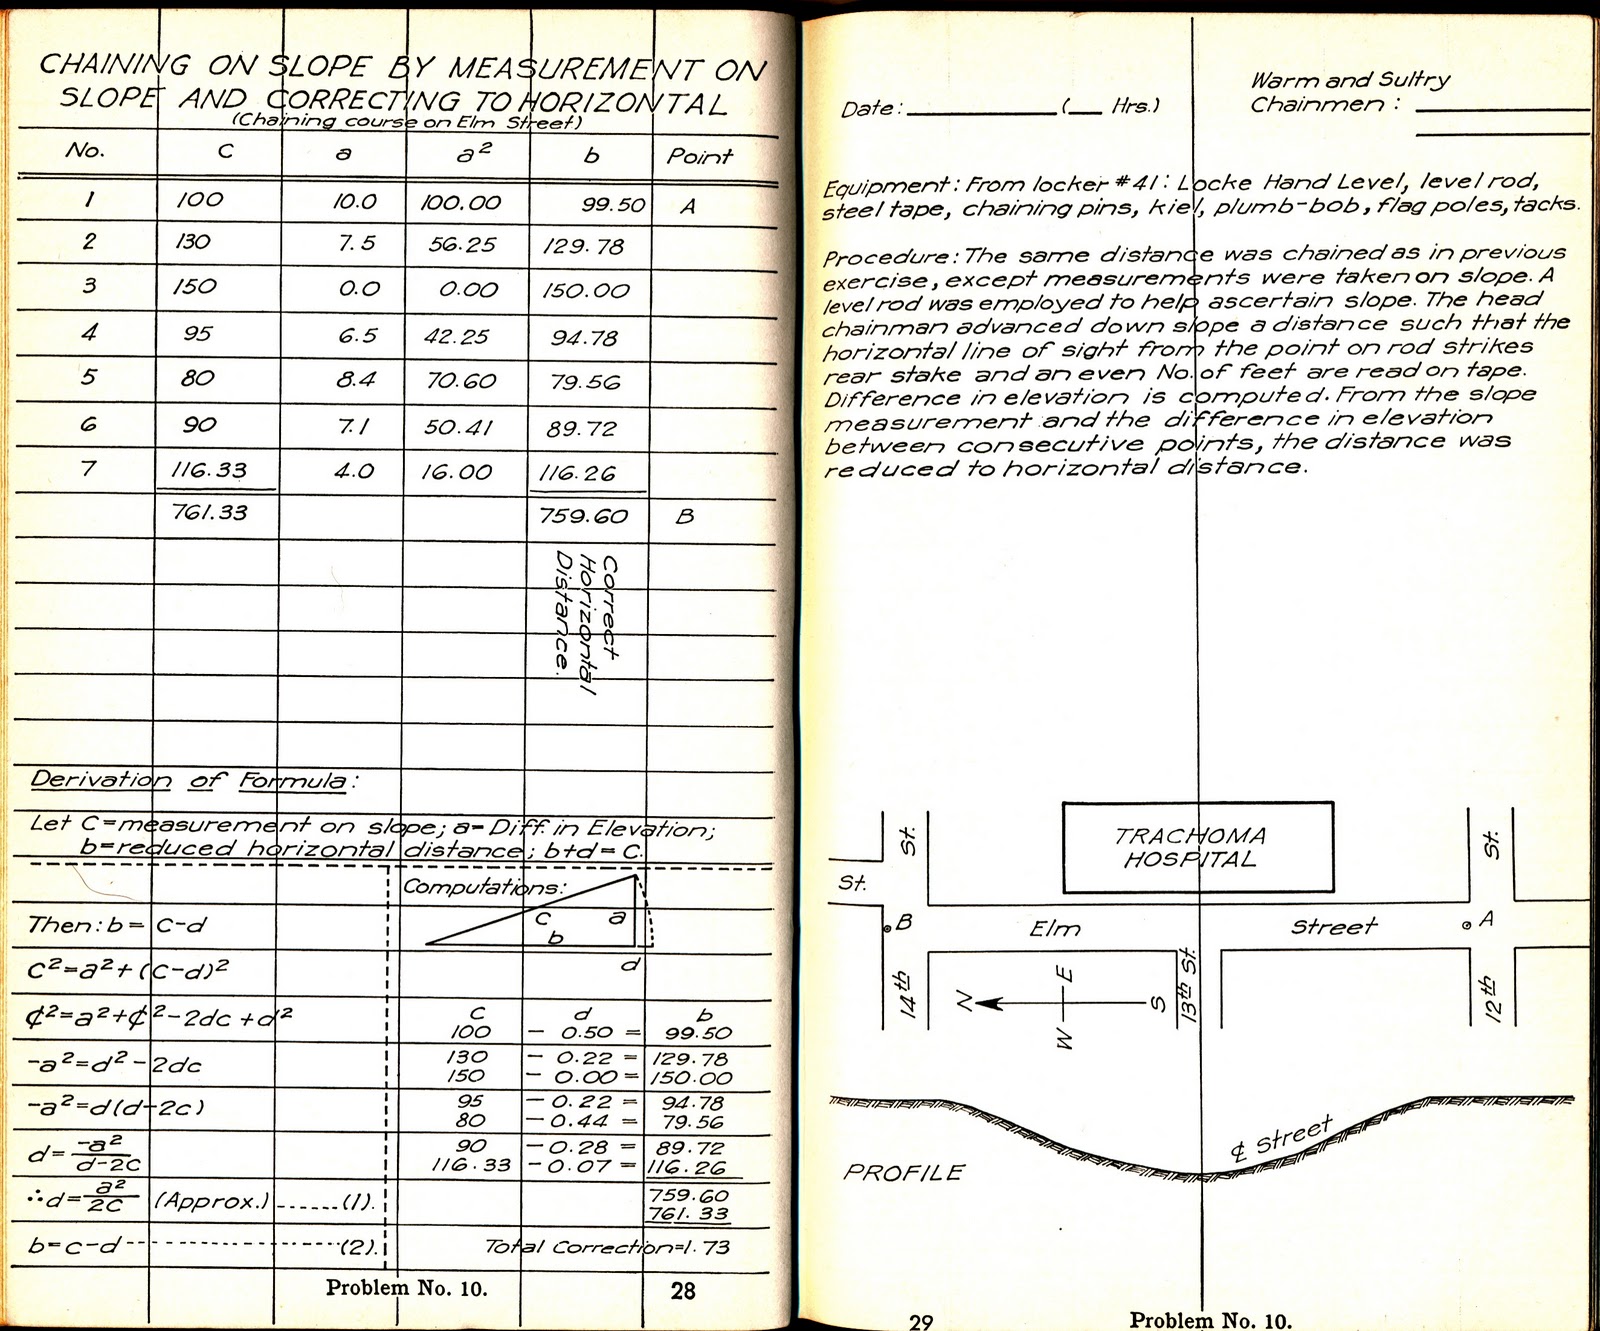 CHAINING ON SLOPE BY MEASUREMENT ON
SLOPE AND CORRECTING TO HORIZONTAL
(Chaining course on Elm Street)
No. C a a² b Point
1 100 10.0 100.00 99.50 A
2 130 7.5 56.25 129.78
3 150 0.0 0.00 150.00
4 95 6.5 42.25 94.78
5 80 8.4 70.60 79.56
6 90 7.1 50.41 89.72
7 116.33 4.0 16.00 116.26
761.33 759.60 B
Correct
Horizontal
Distance.
Derivation of Formula:
Let C=measurement on slope; a= Diff. in Elevation;
b=reduced horizontal distance; b+d=C.
Computations:
c a
b
d
Then: b= C-d
C²=a²+(C-d)²
¢²=a²+¢²-2dc+d²
-a²=d²-2dc
-a²=d(d-2c)
d= -a²
d-2c
∴d= a² (Approx.) ......(1).
2c
b=c-d --------------------(2).
C d b
100 - 0.50 = 99.50
130 - 0.22 = 129.78
150 - 0.00 = 150.00
95 - 0.22 = 94.78
80 - 0.44 = 79.56
90 - 0.28 = 89.72
116.33 - 0.07 = 116.26
759.60
761.33
Total Correction=1.73
Problem No. 10. 28
Date: ____________ (___ Hrs.)
Warm and Sultry
Chainmen :
Equipment: From locker #41: Locke Hand Level, level rod,
steel tape, chaining pins, kiel, plumb-bob, flag poles, tacks.
Procedure: The same distance was chained as in previous
exercise, except measurements were taken on slope. A
level rod was employed to help ascertain slope. The head
chainman advanced down slope a distance such that the
horizontal line of sight from the point on rod strikes
rear stake and an even No. of feet are read on tape.
Difference in elevation is computed. From the slope
measurement and the difference in elevation
between consecutive points, the distance was
reduced to horizontal distance.
TRACHOMA
HOSPITAL
St.
St.
St.
B Elm Street A
14th
N E S W
13th St.
12th
℄ Street
PROFILE
29 Problem No. 10.